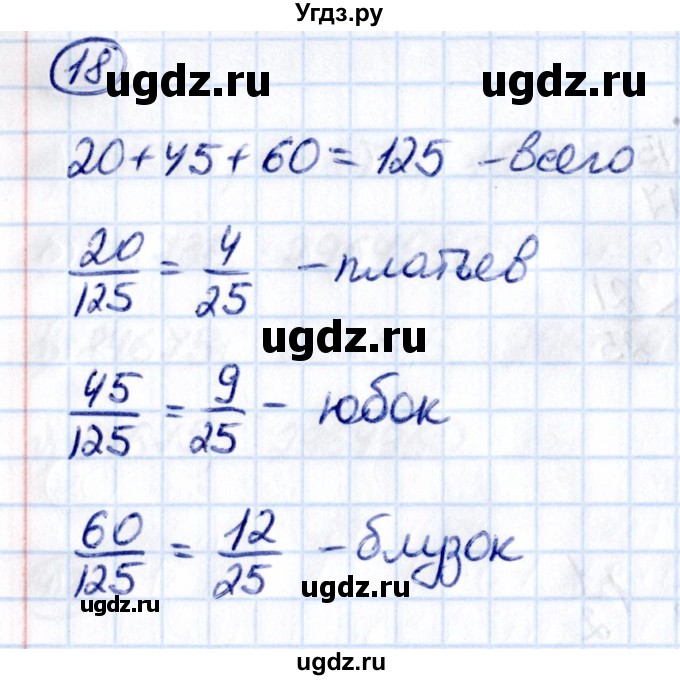 Угдз.ру
18
ugdz.ru ugdz.ru
20+45+60=125 – всего
20/125 = 4/25 – платьев
ugdz.ru
45/125 = 9/25 – юбок
ugdz.ru ugdz.ru
60/125 = 12/25 – блузок
ugdz.ru
ugdz.ru